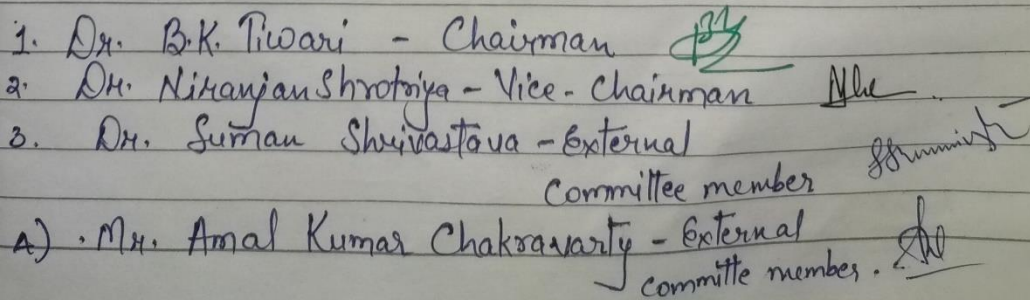 1. Dr. B.K. Tiwari - Chairman
2. Dr. Niranjan Shrotriya - Vice - Chairman
3. Dr. Suman Shrivastava - External
Committee member
4) . Mr. Amal Kumar Chakravarty - External
committe member .